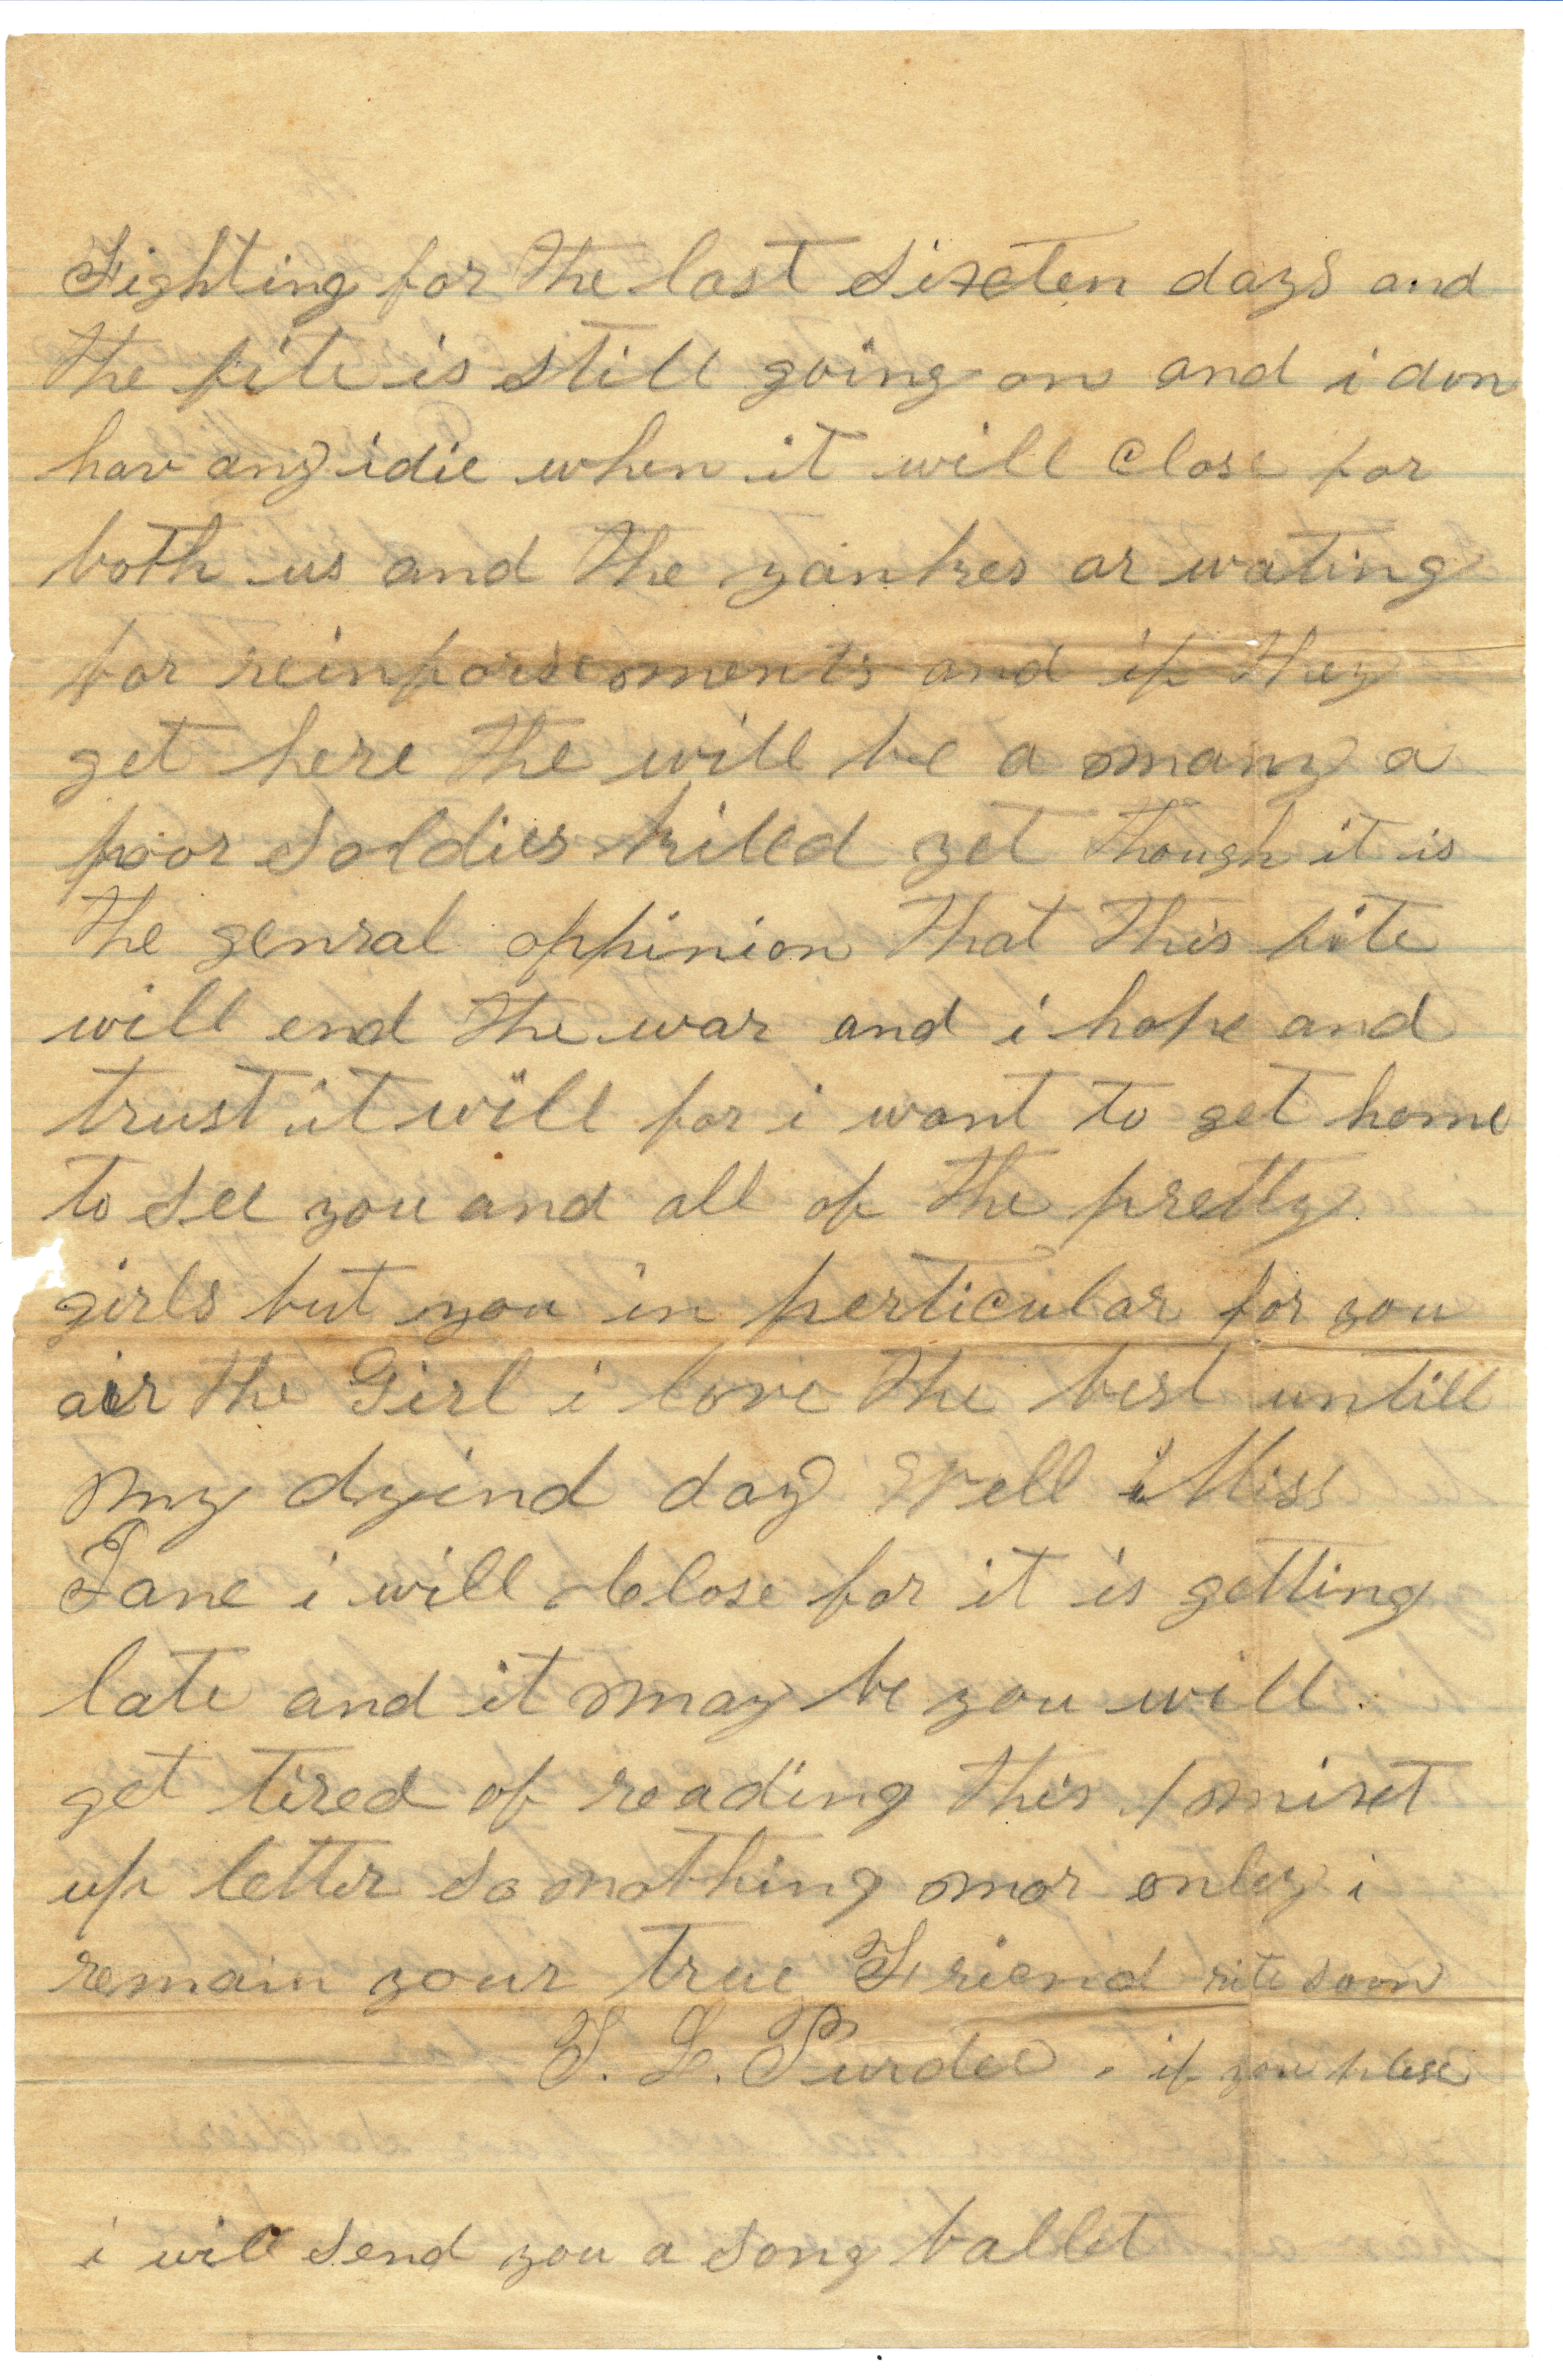 Fighting for the last sixcten days and
the fite is still going on and i don
hav any idie when it will close for
both us and the yankes ar wating
for reinforsements and if they
get here the will be a many a
poor soldier killed yet though it is
the genral oppinion that this fite
will end the war and i hope and
trust it will for i want to get home
to see you and all of the pretty
girls but you in perticular for you
air the Girl i love the best untill
my dyind day Well Miss
Jane i will close for it is getting
late and it may be you will
get tired of reading this mixt
up letter so nothing mor only i
remain your true Friend rite soon
Purdee . if you plese
i will send you a song ballet